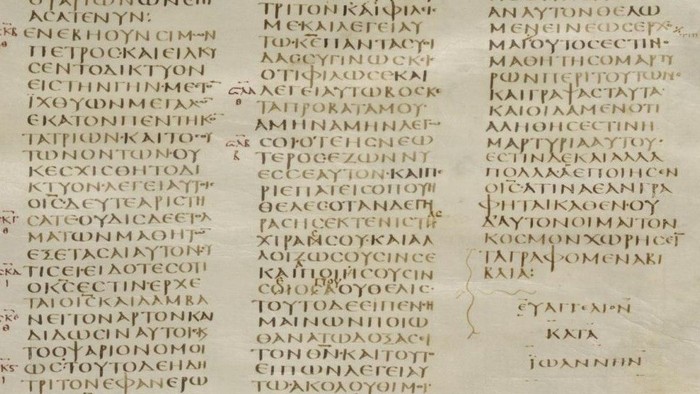 ΑCΑΤΕΝΥΝ:
ΕΝΕΒΗΟΥΝCΙΜΩΝ
ΠΕΤΡΟCΚΑΙΕΙΛΚΥ
CΕΝΤΟΔΙΚΤΥΟΝ
ΕΙCΤΗΝΓΗΝ·ΜΕΤΟ̅
ΙΧΘΥΩΝΜΕΓΑΛΩ̅
ΕΚΑΤΟΝΠΕΝΤΗΚΟ̅
ΤΑΤΡΙΩΝ·ΚΑΙΤΟ
ΤΩΝΟΝΤΩΝ·ΟΥ
ΚΕCΧΙCΘΗΤΟΔΙ
ΚΤΥΟΝ·ΛΕΓΕΙΑΥΤΟΙC
ΟΙ̅C̅ΔΕΥΤΕΑΡΙCΤΗ
CΑΤΕΟΥΔΙCΔΕΕΤΟΛ
ΜΑΤΩΝΜΑΘΗΤΩ̅
ΕΞΕΤΑCΑΙΑΥΤΟΝCΥ
ΤΙCΕΙΕΙΔΟΤΕCΟΤΙ
ΟΚ̅C̅ΕCΤΙΝΕΡΧΕ
ΤΑΙΟΙ̅C̅ΚΑΙΛΑΜΒΑ
ΝΕΙΤΟΝΑΡΤΟΝΚΑΙ
ΔΙΔΩCΙΝΑΥΤΟΙC
ΤΟΟΨΑΡΙΟΝΟΜΟΙ
ΩCΤΟΥΤΟΔΕΗΔΗ
ΤΡΙΤΟΝΕΦΑΝΕΡΩ
ΤΡΙΤΟΝΚΑΙΦΙΛΙC
ΜΕΚΑΙΛΕΓΕΙΑΥ
ΤΩ·Κ̅Ε̅ΠΑΝΤΑCΥΟΙ
ΔΑCCΥΓΙΝΩCΚΙC
ΟΤΙΦΙΛΩCΕΚΑΙ
ΛΕΓΕΙΑΥΤΩΒΟCΚΕ
ΤΑΠΡΟΒΑΤΑΜΟΥ
ΑΜΗΝΑΜΗΝΛΕΓΩ
CΟΙ·ΟΤΕΗCΝΕΩ
ΤΕΡΟCΕΖΩΝΝΥ
ΕCCΕΑΥΤΟΝ·ΚΑΙΠΕ
ΡΙΕΠΑΤΕΙCΟΠΟΥΗ
ΘΕΛΕCΟΤΑΝΔΕΓΗ
ΡΑCΗCΕΚΤΕΝΙCΤΗ̅
ΧΙΡΑCΟΥΚΑΙΑΛ
ΛΟΙΖΩCΟΥCΙΝCΕ
ΚΑΙΠΟΙΗCΟΥCΙΝ
CΟΙΟCΑΟΥΘΕΛΙC
ΤΟΥΤΟΔΕΕΙΠΕΝCΗ
ΜΑΙΝΩΝΠΟΙΩ
ΘΑΝΑΤΩΔΟΞΑCΙ
ΤΟΝΘ̅Ν̅·ΚΑΙΤΟΥΤΟ
ΕΙΠΩΝΛΕΓΕΙΑΥ
ΤΩ·ΑΚΟΛΟΥΘΙΜΟΙ
ΑΝΑΥΤΟΝΘΕΛΩ
ΜΕΝΕΙΝΕΩCΕΡΧΟ
ΜΑΙ
ΟΥΤΟCΕCΤΙΝΟ
ΜΑΘΗΤΗCΟΜΑΡΤΥ
ΡΩΝΠΕΡΙΤΟΥΤΩΝ
ΚΑΙΓΡΑΨΑCΤΑΥΤΑ
ΚΑΙΟΙΔΑΜΕΝΟΤΙ
ΑΛΗΘΗCΕCΤΙΝΗ
ΜΑΡΤΥΡΙΑΑΥΤΟΥ·
ΕCΤΙΝΔΕΚΑΙΑΛΛΑ
ΠΟΛΛΑΑΕΠΟΙΗCΕΝ
ΟΙ̅C̅ΑΤΙΝΑΕΑΝΓΡΑ
ΦΗΤΑΙΚΑΘΕΝ·ΟΥ
Δ᾽ΑΥΤΟΝΟΙΜΑΙΤΟΝ
ΚΟCΜΟΝΧΩΡΗCΕΙ̅
ΤΑΓΡΑΦΟΜΕΝΑΒΙ
ΒΛΙΑ:
ΕΥΑΓΓΕΛΙΟΝ
ΚΑΤΑ
ΪΩΑΝΝΗΝ